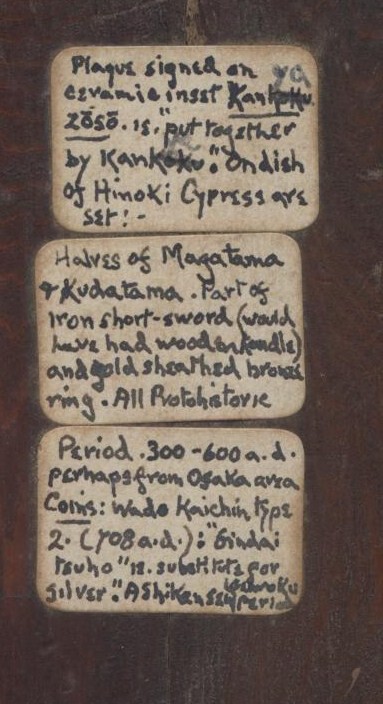 Plaque signed on
ceramic inset Kankoku
Zōsō. is. "put together
by Kankoku". On dish
of Hinoki Cypress are
set:-
Halves of Magatama
& Kudatama. Part of
iron short-sword (would
have had wooden handle)
and gold sheathed bronze
ring. All Protohistoric
Period. 300-600 a.d.
perhaps from Osaka area
Coins: Wado Kaichin, type
2. (708 a.d.): "Gindai
tsuho" is. substitute for
silver". Ashikaga
period